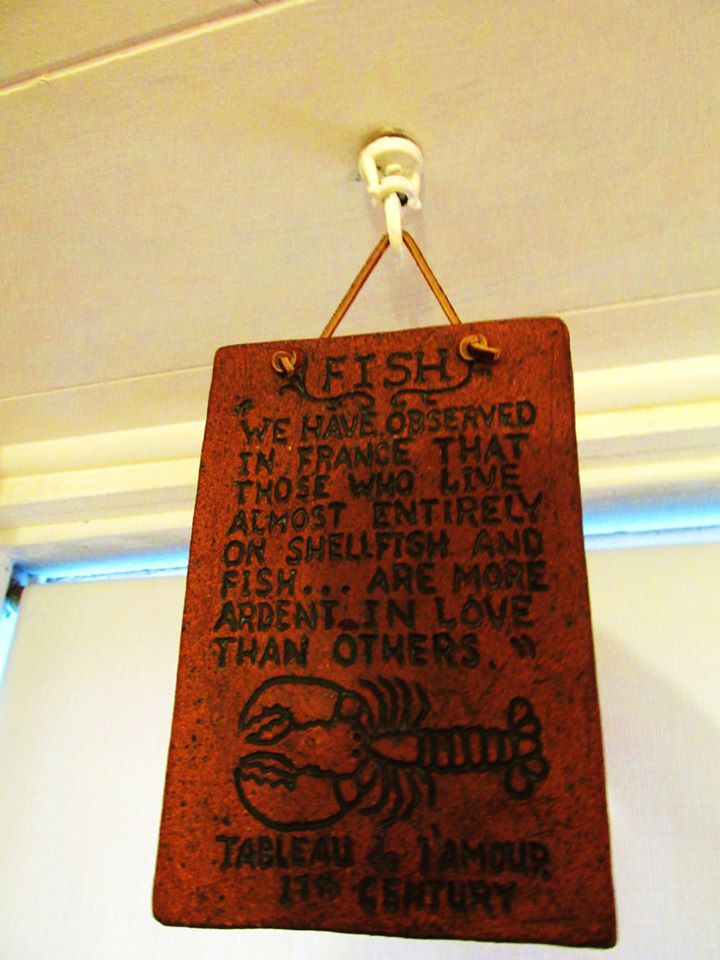 FISH
"WE HAVE OBSERVED
IN FRANCE THAT
THOSE WHO LIVE
ALMOST ENTIRELY
ON SHELLFISH AND
FISH... ARE MORE
ARDENT IN LOVE
THAN OTHERS."
TABLEAU de l'AMOUR
17th CENTURY